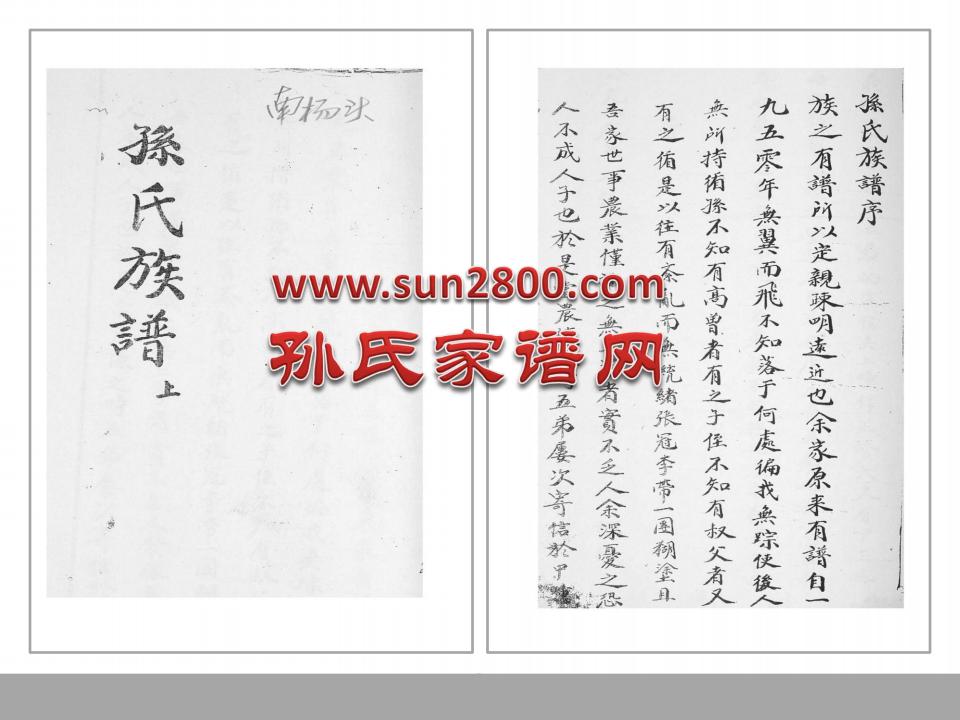 南杨汖
孫氏族譜
上
www.sun2800.com
孙氏家谱网
孫氏族譜序
族之有譜所以定親疎明遠近也余家原来有譜自一
九五零年無翼而飛不知落于何處徧找無踪使後人
無所持循孫不知有高曾者有之子侄不知有叔父者又
有之循是以往有紊亂而無統緒張冠李帶一圏糊塗且
吾家世事農業僅 無 者實不乏人余深憂之恐
人不成人子也於是 農 五弟屡次寄信於甲